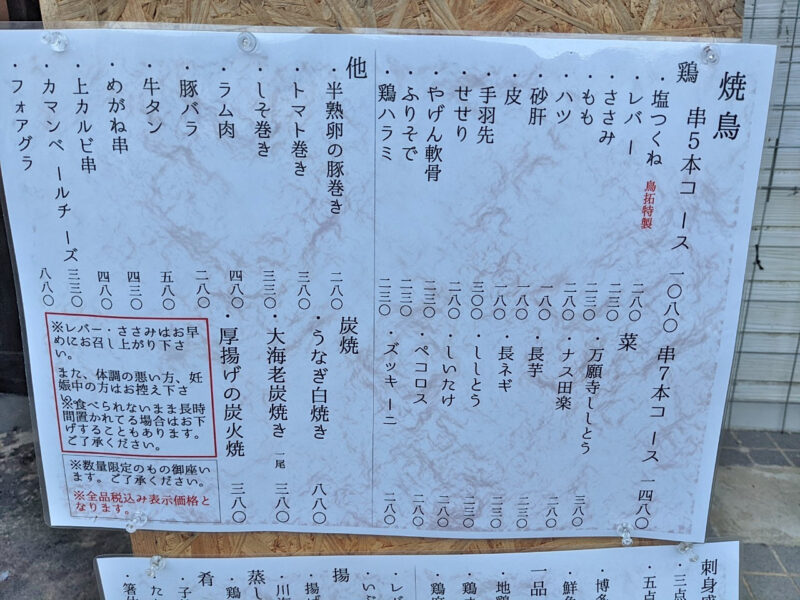 焼鳥
鶏 串5本コース 一〇八〇 串7本コース 一四八〇
・塩つくね 鳥拓特製 二八〇
・レバー 二三〇
・ささみ 二三〇
・もも 二八〇
・ハツ 一八〇
・砂肝 一八〇
・皮 一八〇
・手羽先 三〇〇
・せせり 二八〇
・やげん軟骨 二三〇
・ふりそで 二三〇
・鶏ハラミ 二三〇
菜
・万願寺ししとう 三八〇
・ナス田楽 二八〇
・長芋 二三〇
・長ネギ 二三〇
・ししとう 二三〇
・しいたけ 二八〇
・ペコロス 二八〇
・ズッキーニ 二八〇
他
・半熟卵の豚巻き 二八〇
・トマト巻き 三八〇
・しそ巻き 三三〇
・ラム肉 四八〇
・豚バラ 二八〇
・牛タン 五八〇
・めがね串 四三〇
・上カルビ串 四八〇
・カマンベールチーズ 三三〇
・フォアグラ 八八〇
炭焼
・うなぎ白焼き 八八〇
・大海老炭焼き 一尾 三八〇
・厚揚げの炭火焼 三八〇
※レバー・ささみはお早
めにお召し上がり下さ
い。
また、体調の悪い方、妊
娠中の方はお控え下さ
い。
※食べられないまま長時
間置かれてる場合はお下
げすることもあります。
ご了承ください。
※数量限定のもの御座い
ます。ご了承ください。
※全品税込み表示価格と
なります。
刺身
・三点
・五点
・博
・鮮
一品
・地
・鶏
揚
・揚
・川
蒸し
・鶏
肴
・子
・た